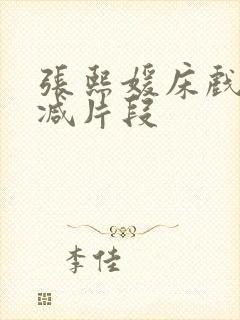 張熙媛床戲
减片段
李佳